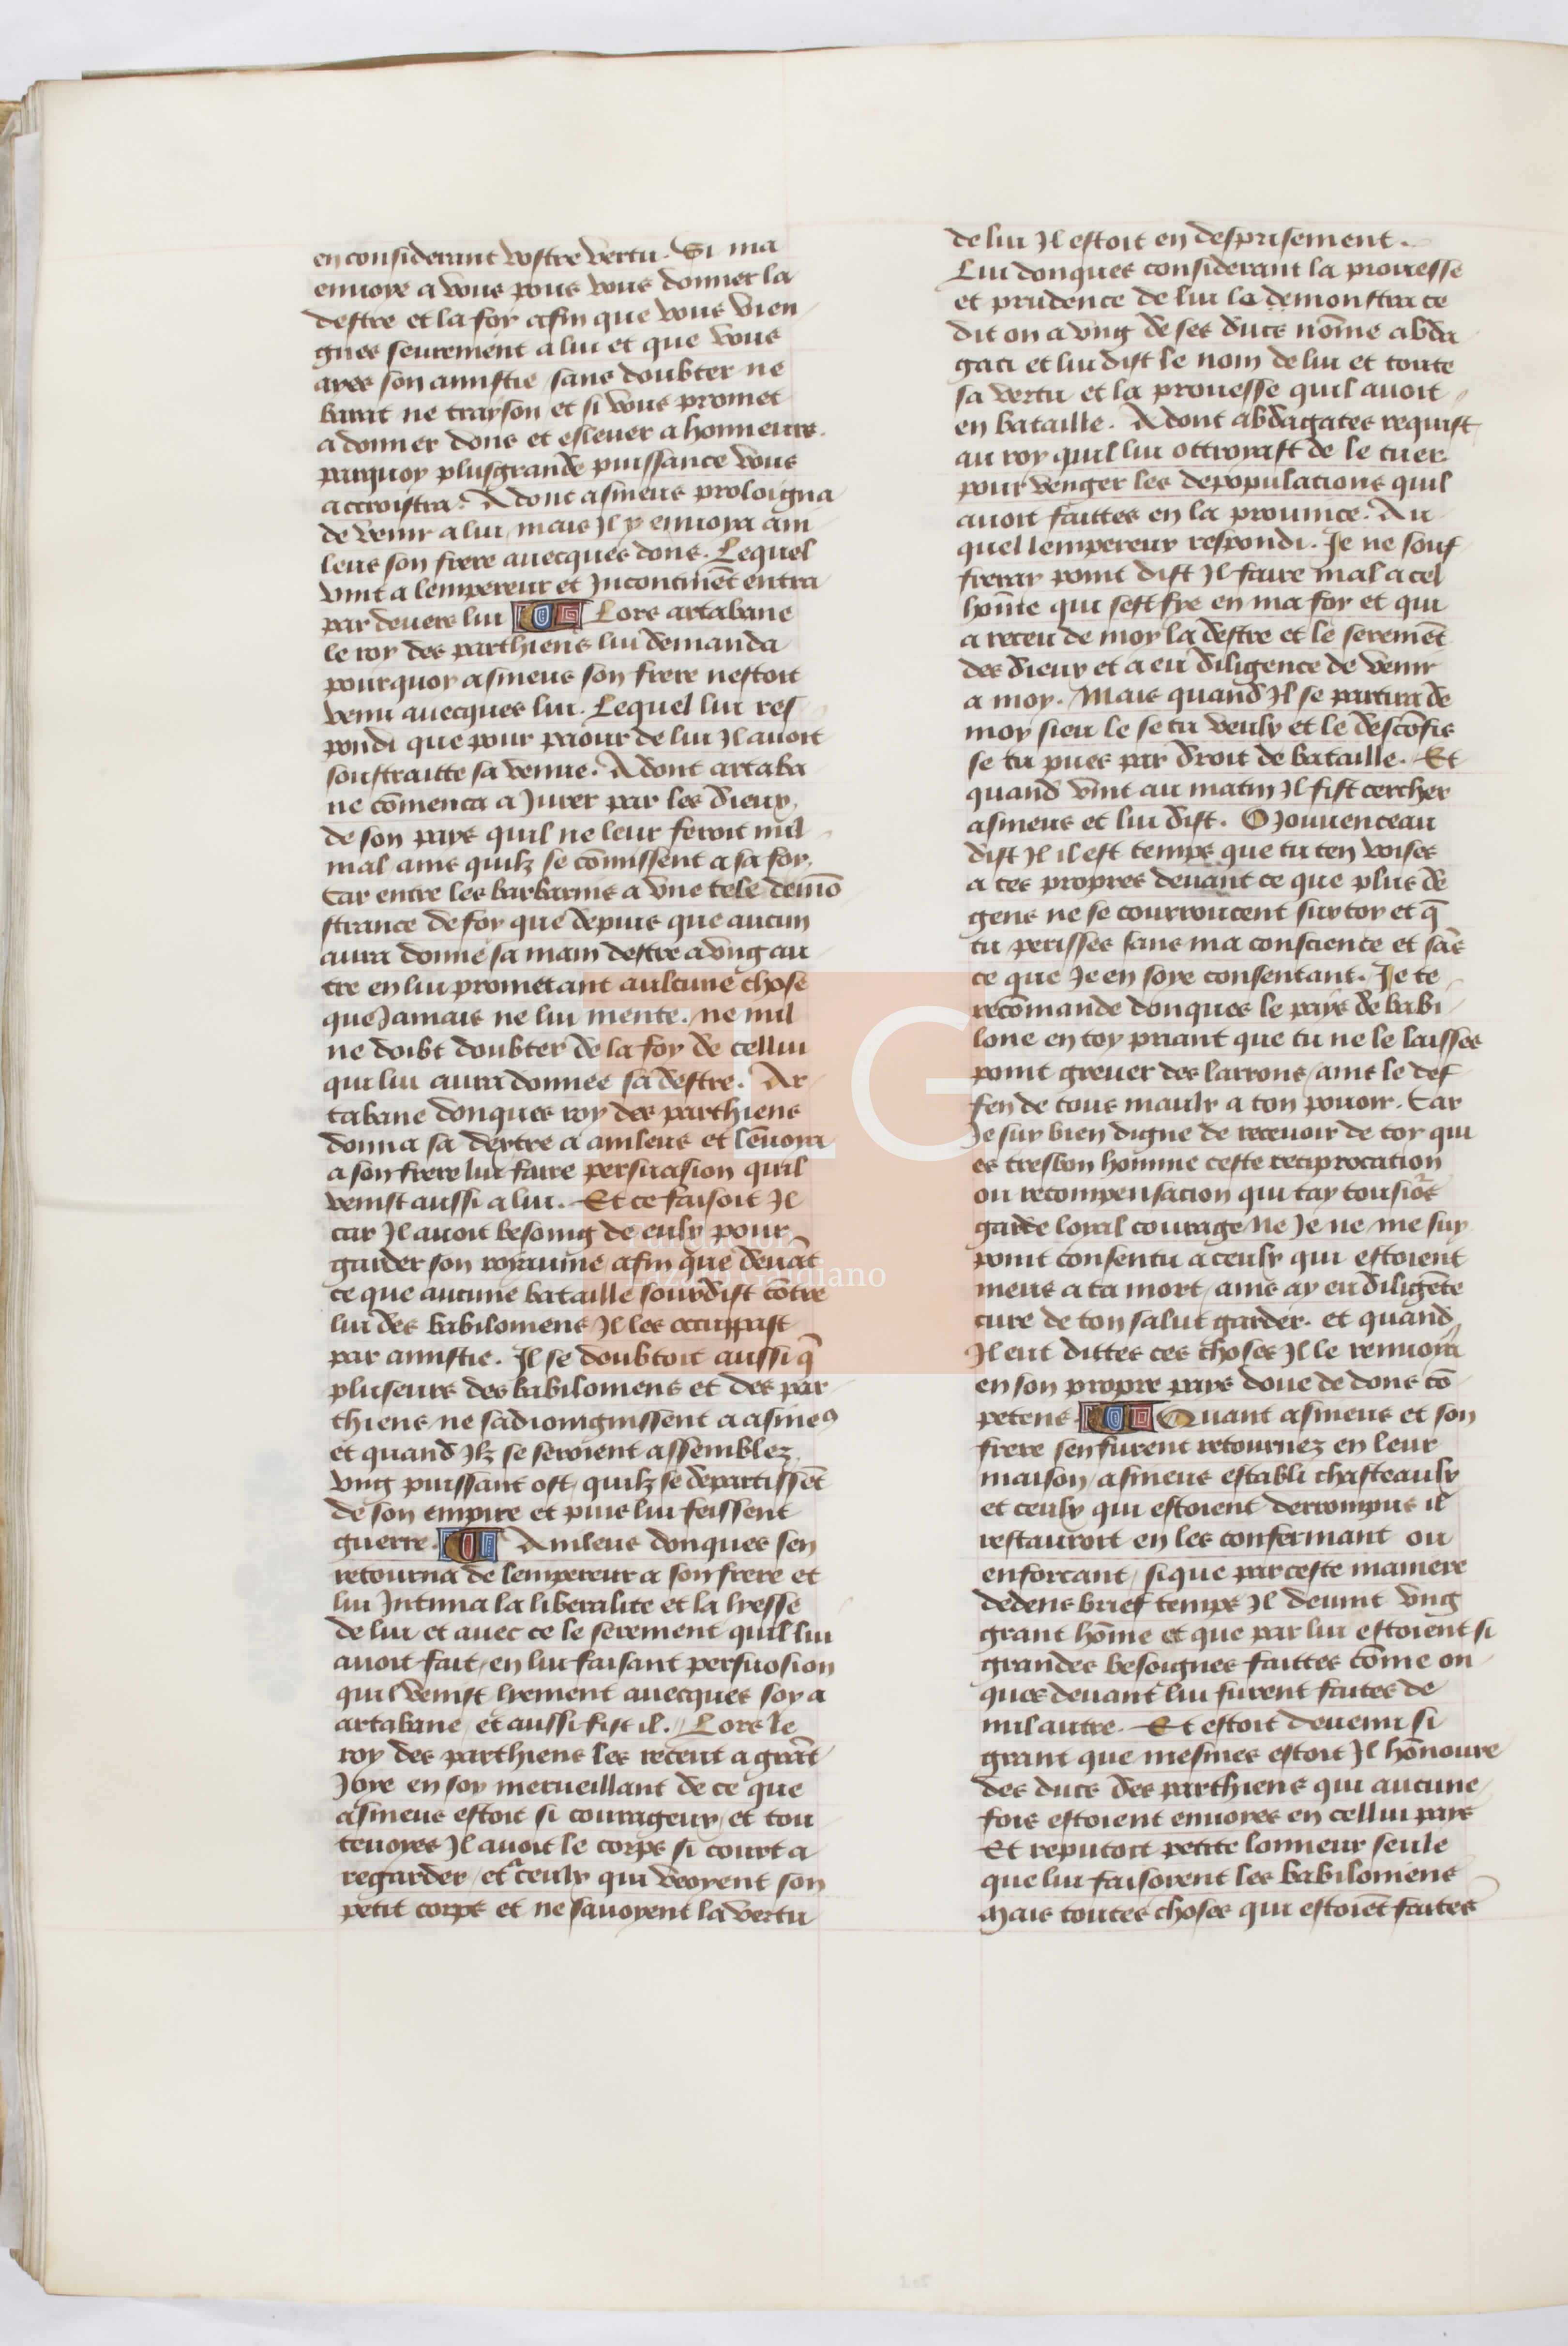 en considerant vostre vertu. Si ma
enuoye a vous pour vous donner la
destre et la foy afin que vous vien
gnes seurement a lui et que vous
ayes son amistie sans doubter ne
barat ne trayson et si vous promet
a donner dons et esleuer a honneurs.
parquoy plusgrande puissance vous
accroistra. Adont asineus proloigna
de venir a lui mais Il y enuoya ani
leus son frere auecques dons. Lequel
vint a lempereur et Incontinēt entra
par deuers lui Lors artabane
le roy des parthiens lui demanda
pourquoy asineus son frere nestoit
venu auecques lui. Lequel lui res
pondi que pour paour de lui Il auoit
soustraitte sa venue. Adont artaba
ne cōmenca a Jurer par les dieux
de son pays quil ne leur feroit nul
mal ains quilz se cōmissent a sa foy.
Car entre les barbarins a vne tele demō
strance de foy que depuis que aucun
aura donne sa main destre a vng au
tre en lui prometant aulcune chose
que Jamais ne lui mente. ne nul
ne doibt doubter de la foy de cellui
qui lui aura donnee sa destre. Ar
tabane donques roy des parthiens
donna sa dextre a anileus et lēuoya
a son frere lui faire persuasion quil
venist aussi a lui. Et ce faisoit Il
car Il auoit besoing de eulx pour
garder son royaume afin que deuāt
ce que aucune bataille sourdist cōtre
lui des babiloniens Il les occupast
par amistie. Il se doubtoit aussi q̄
pluseurs des babiloniens et des par
thiens ne sadioingnissent a asineꝰ
et quand Ilz se seroient assemblez
vng puissant ost quilz se departissēt
de son empire et puis lui feissent
guerre. Anileus donques sen
retourna de lempereur a son frere et
lui Intima la liberalite et la lyesse
de lui et auec ce le serement quil lui
auoit fait en lui faisant persuosion
quil venist lyement auecques soy a
artabane et aussi fist il. Lors le
roy des parthiens les receut a grāt
Joye en soy merueillant de ce que
asineus estoit si courageux et tou
teuoyes Il auoit le corps si court a
regarder et ceulx qui veoyent son
petit corps et ne sauoyent la vertu
de lui Il estoit en desprisement.
Lui donques considerant la prouesse
et prudence de lui la demonstra ce
dit on a vng de ses ducs nōme abda
gaci et lui dist le nom de lui et toute
sa vertu et la prouesse quil auoit
en bataille. Adont abdagates requist
au roy quil lui ottroyast de le tuer
pour venger les depopulacions quil
auoit faittes en la prouince. Au
quel lempereur respondi. Je ne souf
freray point dist Il faire mal a cel
hōme qui sest fye en ma foy et qui
a receu de moy la destre et le seremēt
des dieux et a eu diligence de venir
a moy. Mais quand Il se partira de
moy sieu le se tu veulx et le descōfis
se tu pues par droit de bataille. Et
quand vint au matin Il fist cercher
asineus et lui dist. O Jouuenceau
dist Il il est temps que tu ten voises
a tes propres deuant ce que plus de
gens ne se courroucent sur toy et q̄
tu perisses sans ma conscience et sās
ce que Je en soye consentant. Je te
recōmande donques le pays de babi
lone en toy priant que tu ne le laisses
point greuer des larrons ains le def
fen de tous maulx a ton pouoir. Car
Je suy bien digne de receuoir de toy qui
es tresbon homme ceste reciprocation
ou recompensacion qui tay tousiōrs
garde loyal courage Ne Je ne me suy
point consentu a ceulx qui estoient
meus a ta mort ains ay eu diligēte
cure de ton salut garder. et quand
Il eut dittes ces choses Il le renuoya
en son propre pays doue de dons cō
petens. Quant asineus et son
frere sen furent retournez en leur
maison asineus establi chasteaulx
et ceulx qui estoient derrompus il
restauroit en les confermant ou
enforcant, sique par ceste maniere
dedens brief temps Il deuint vng
grant hōme et que par lui estoient si
grandes besoignes faittes cōme on
ques deuant lui furent faites de
nul autre. Et estoit deuenu si
grant que mesmes estoit Il hōnoure
des ducs des parthiens qui aucune
fois estoient enuoyes en cellui pays
Et reputoit petite lonneur seule
que lui faisoyent les babiloniens
Mais toutes choses qui estoiēt faites
FLG
Fundación
Lázaro Galdiano